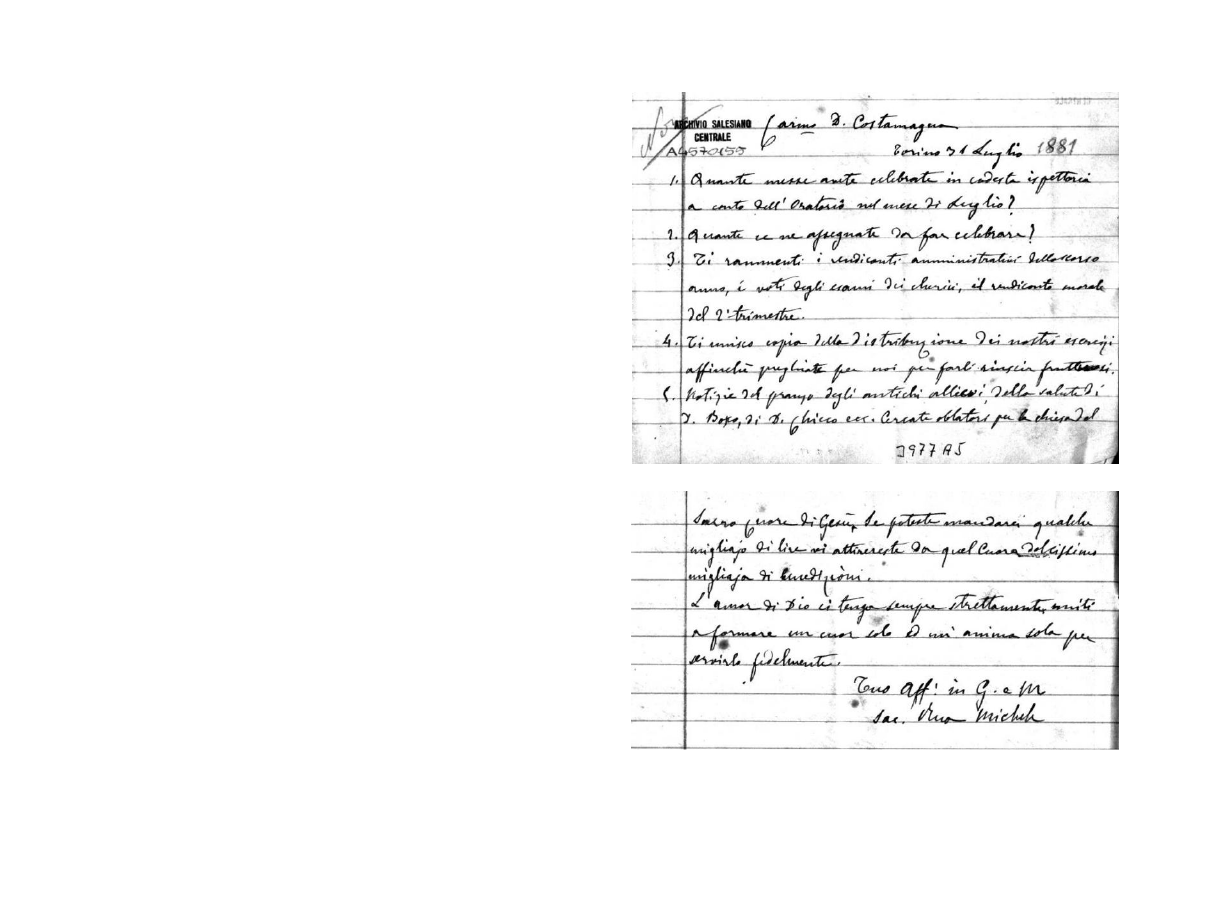 ARCHIVIO SALESIANO
CENTRALE
A4570155
Car.mo D. Costamagna
Torino 31 Luglio 1881
1. Quante messe avete celebrate in codesta ispettoria
a conto dell'Oratorio nel mese di Luglio?
2. Quante ce ne assegnate da far celebrare?
3. Ti rammenti i rendiconti amministrativi dello scorso
anno, i voti degli esami dei chierici, il rendiconto morale
del 2° trimestre.
4. Ti unisco copia della distribuzione dei nostri esercizi
affinchè preghiate per noi per farli riuscir fruttuosi.
5. Notizie del pranzo degli antichi allievi, della salute di
D. Bosco, di D. Chicco ecc. Cercate oblatori per la chiesa del
3977 A5
Sacro Cuore di Gesù, Se poteste mandarci qualche
migliajo di lire vi attirereste da quel Cuore dolcissimo
migliaja di benedizioni.
L'amor di Dio ci tenga sempre strettamente uniti
a formare un cuor solo ed un'anima sola per
servirlo fedelmente.
Tuo Aff. in G. e M
Sac. Rua Michele